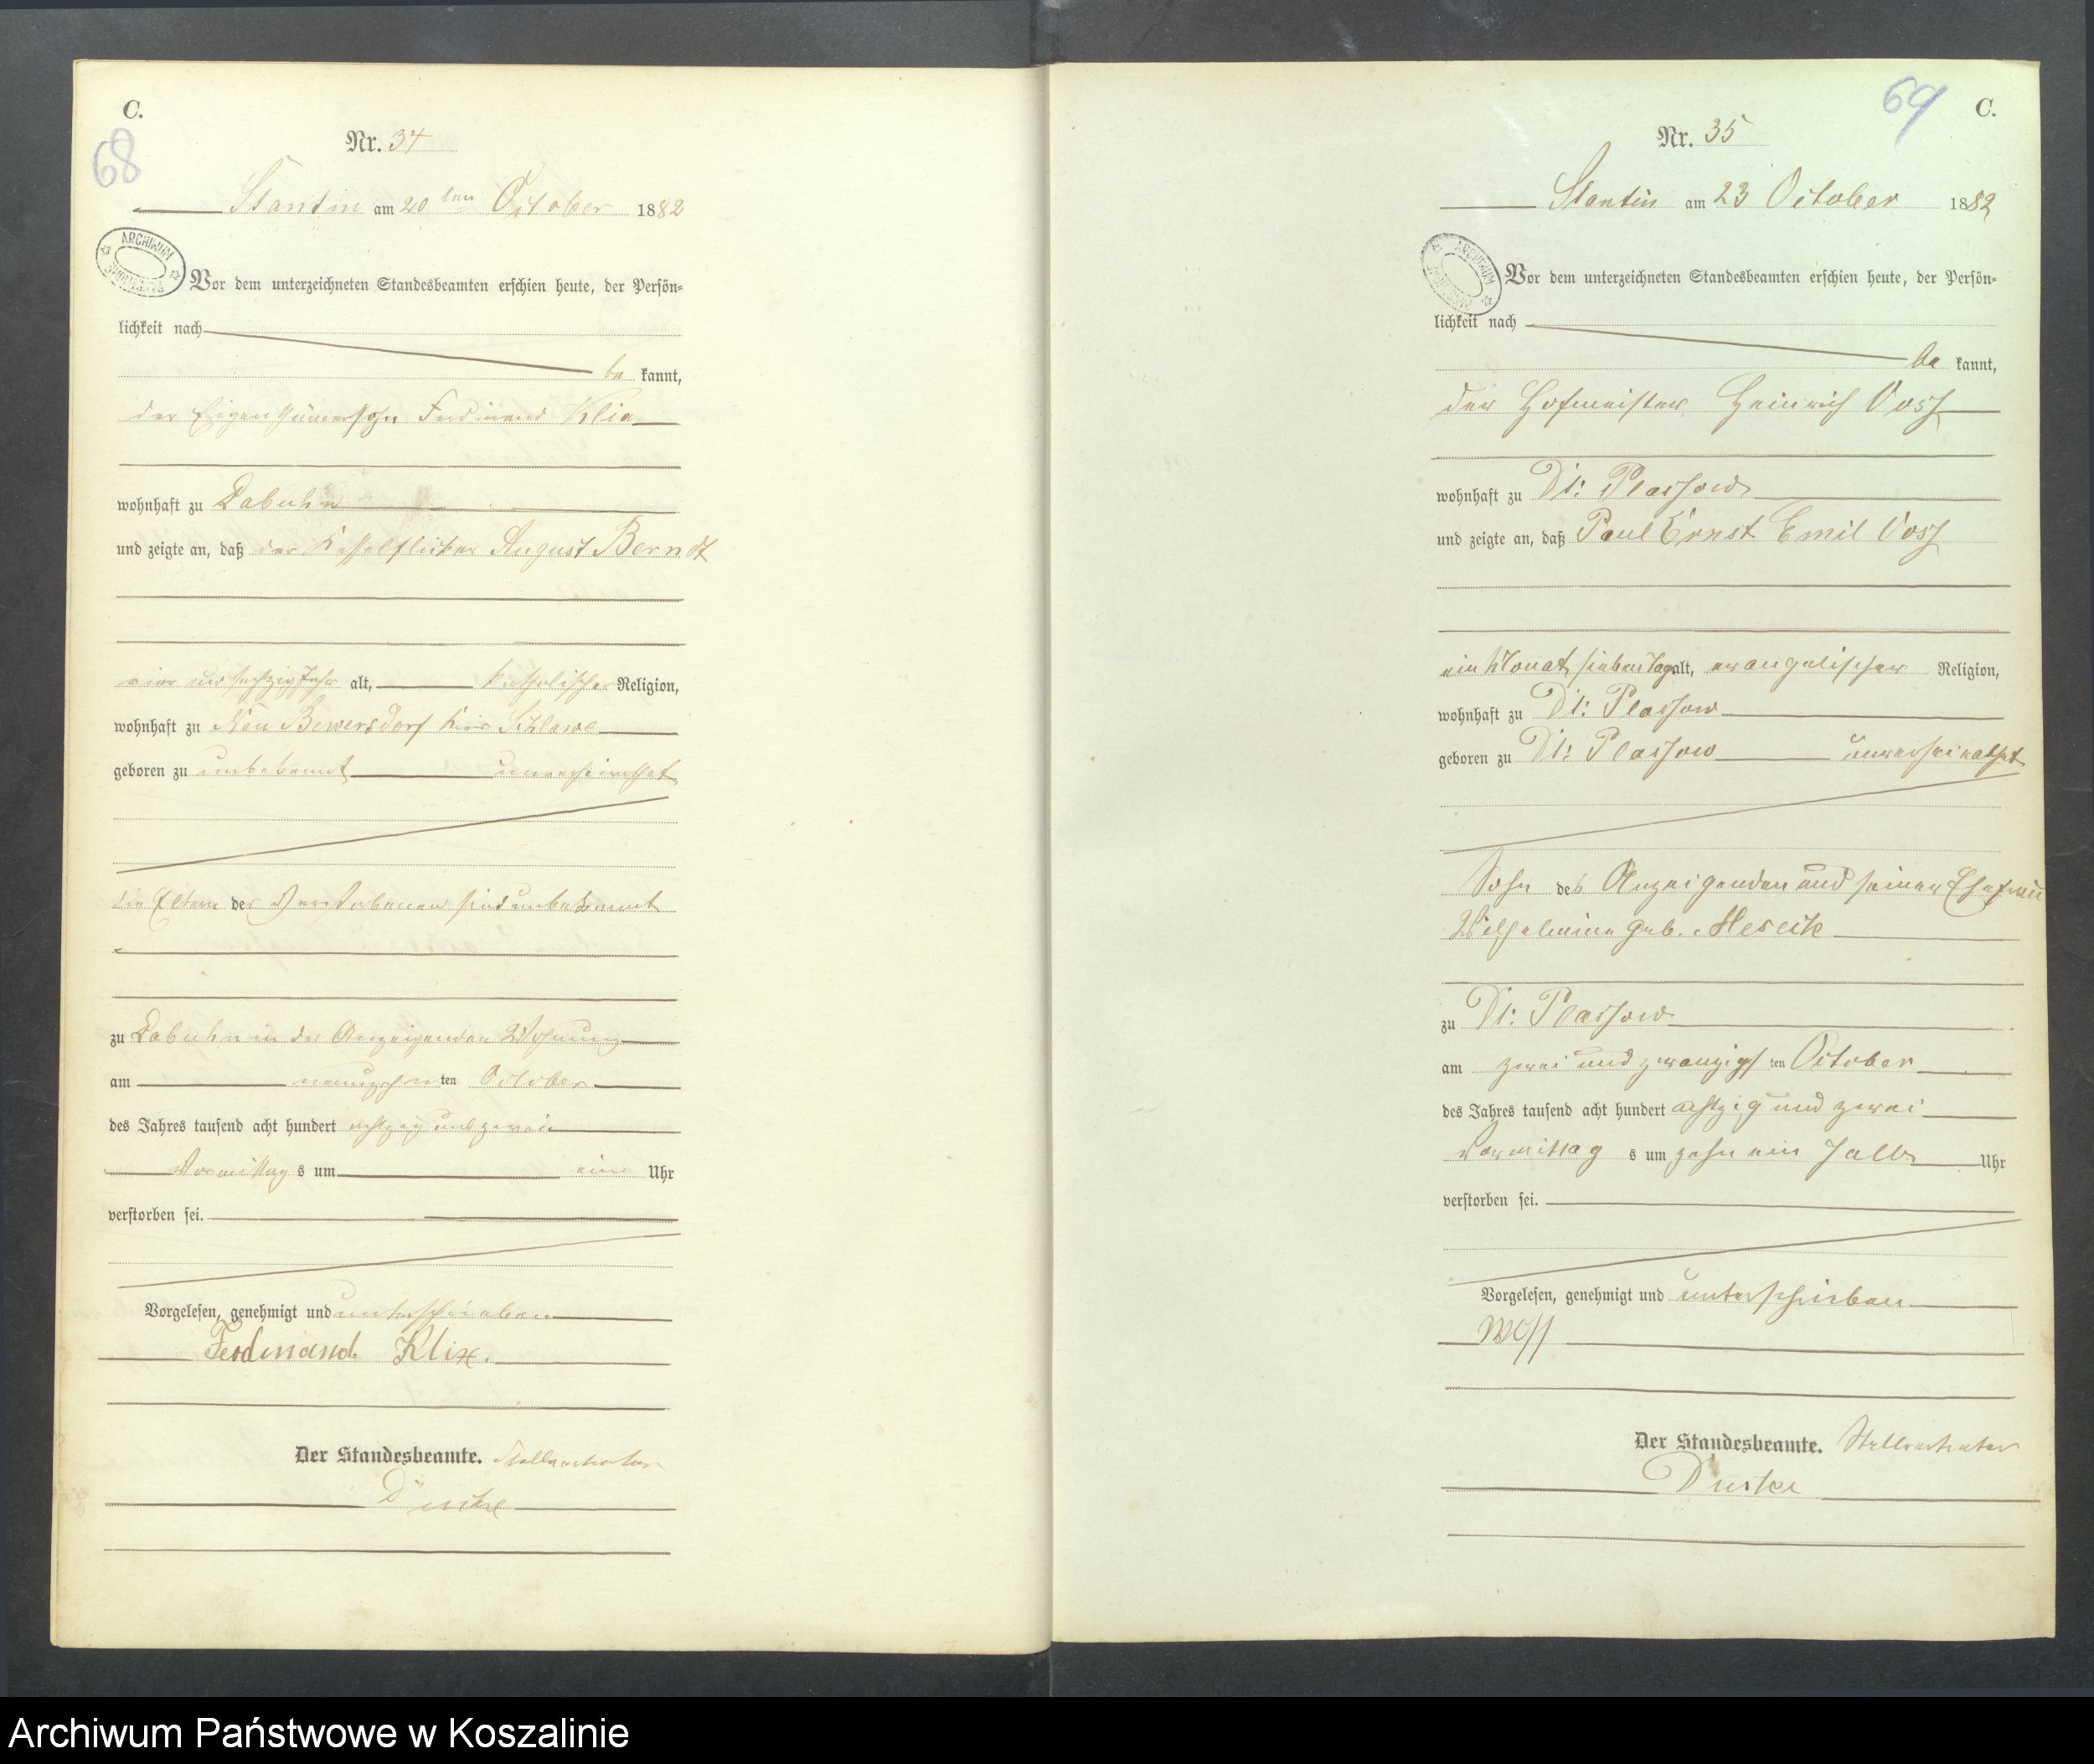 C.
68
Nr. 34
Stantin am 20ten October 1882
ARCHIWUM
Vor dem unterzeichneten Standesbeamten erschien heute, der Persön=
lichkeit nach
be kannt,
der Eigenthümersohn Ferdinand Klix
wohnhaft zu Dabuhn
und zeigte an, daß der Kesselflicker August Berndt
vier und sechzig Jahr alt, katholischer Religion,
wohnhaft zu Neu Bewersdorf Kreis Schlawe
geboren zu unbekannt unverheirathet
die Eltern des Verstorbenen sind unbekannt
zu Dabuhn in des Anzeigenden Wohnung
am neunzehnten October
des Jahres tausend acht hundert achtzig und zwei
Vormittags um eins Uhr
verstorben sei.
Vorgelesen, genehmigt und unterschrieben
Ferdinand Klix.
Der Standesbeamte. Stellvertreter
69
C.
Nr. 35
Stantin am 23 October 1882
ARCHIWUM
Vor dem unterzeichneten Standesbeamten erschien heute, der Persön=
lichkeit nach
be kannt,
der Hofmeister Heinrich Voss
wohnhaft zu Dt: Plassow
und zeigte an, daß Paul Ernst Emil Voss
ein Monat sieben Tage alt, evangelischer Religion,
wohnhaft zu Dt: Plassow
geboren zu Dt: Plassow unverheirathet
Sohn des Anzeigenden und seiner Ehefrau
Wilhelmine geb.
zu Dt: Plassow
am zwei und zwanzigsten October
des Jahres tausend acht hundert achtzig und zwei
Vormittags um zehn ein halb Uhr
verstorben sei.
Vorgelesen, genehmigt und unterschrieben
Woss
Der Standesbeamte. Stellvertreter
Archiwum Państwowe w Koszalinie